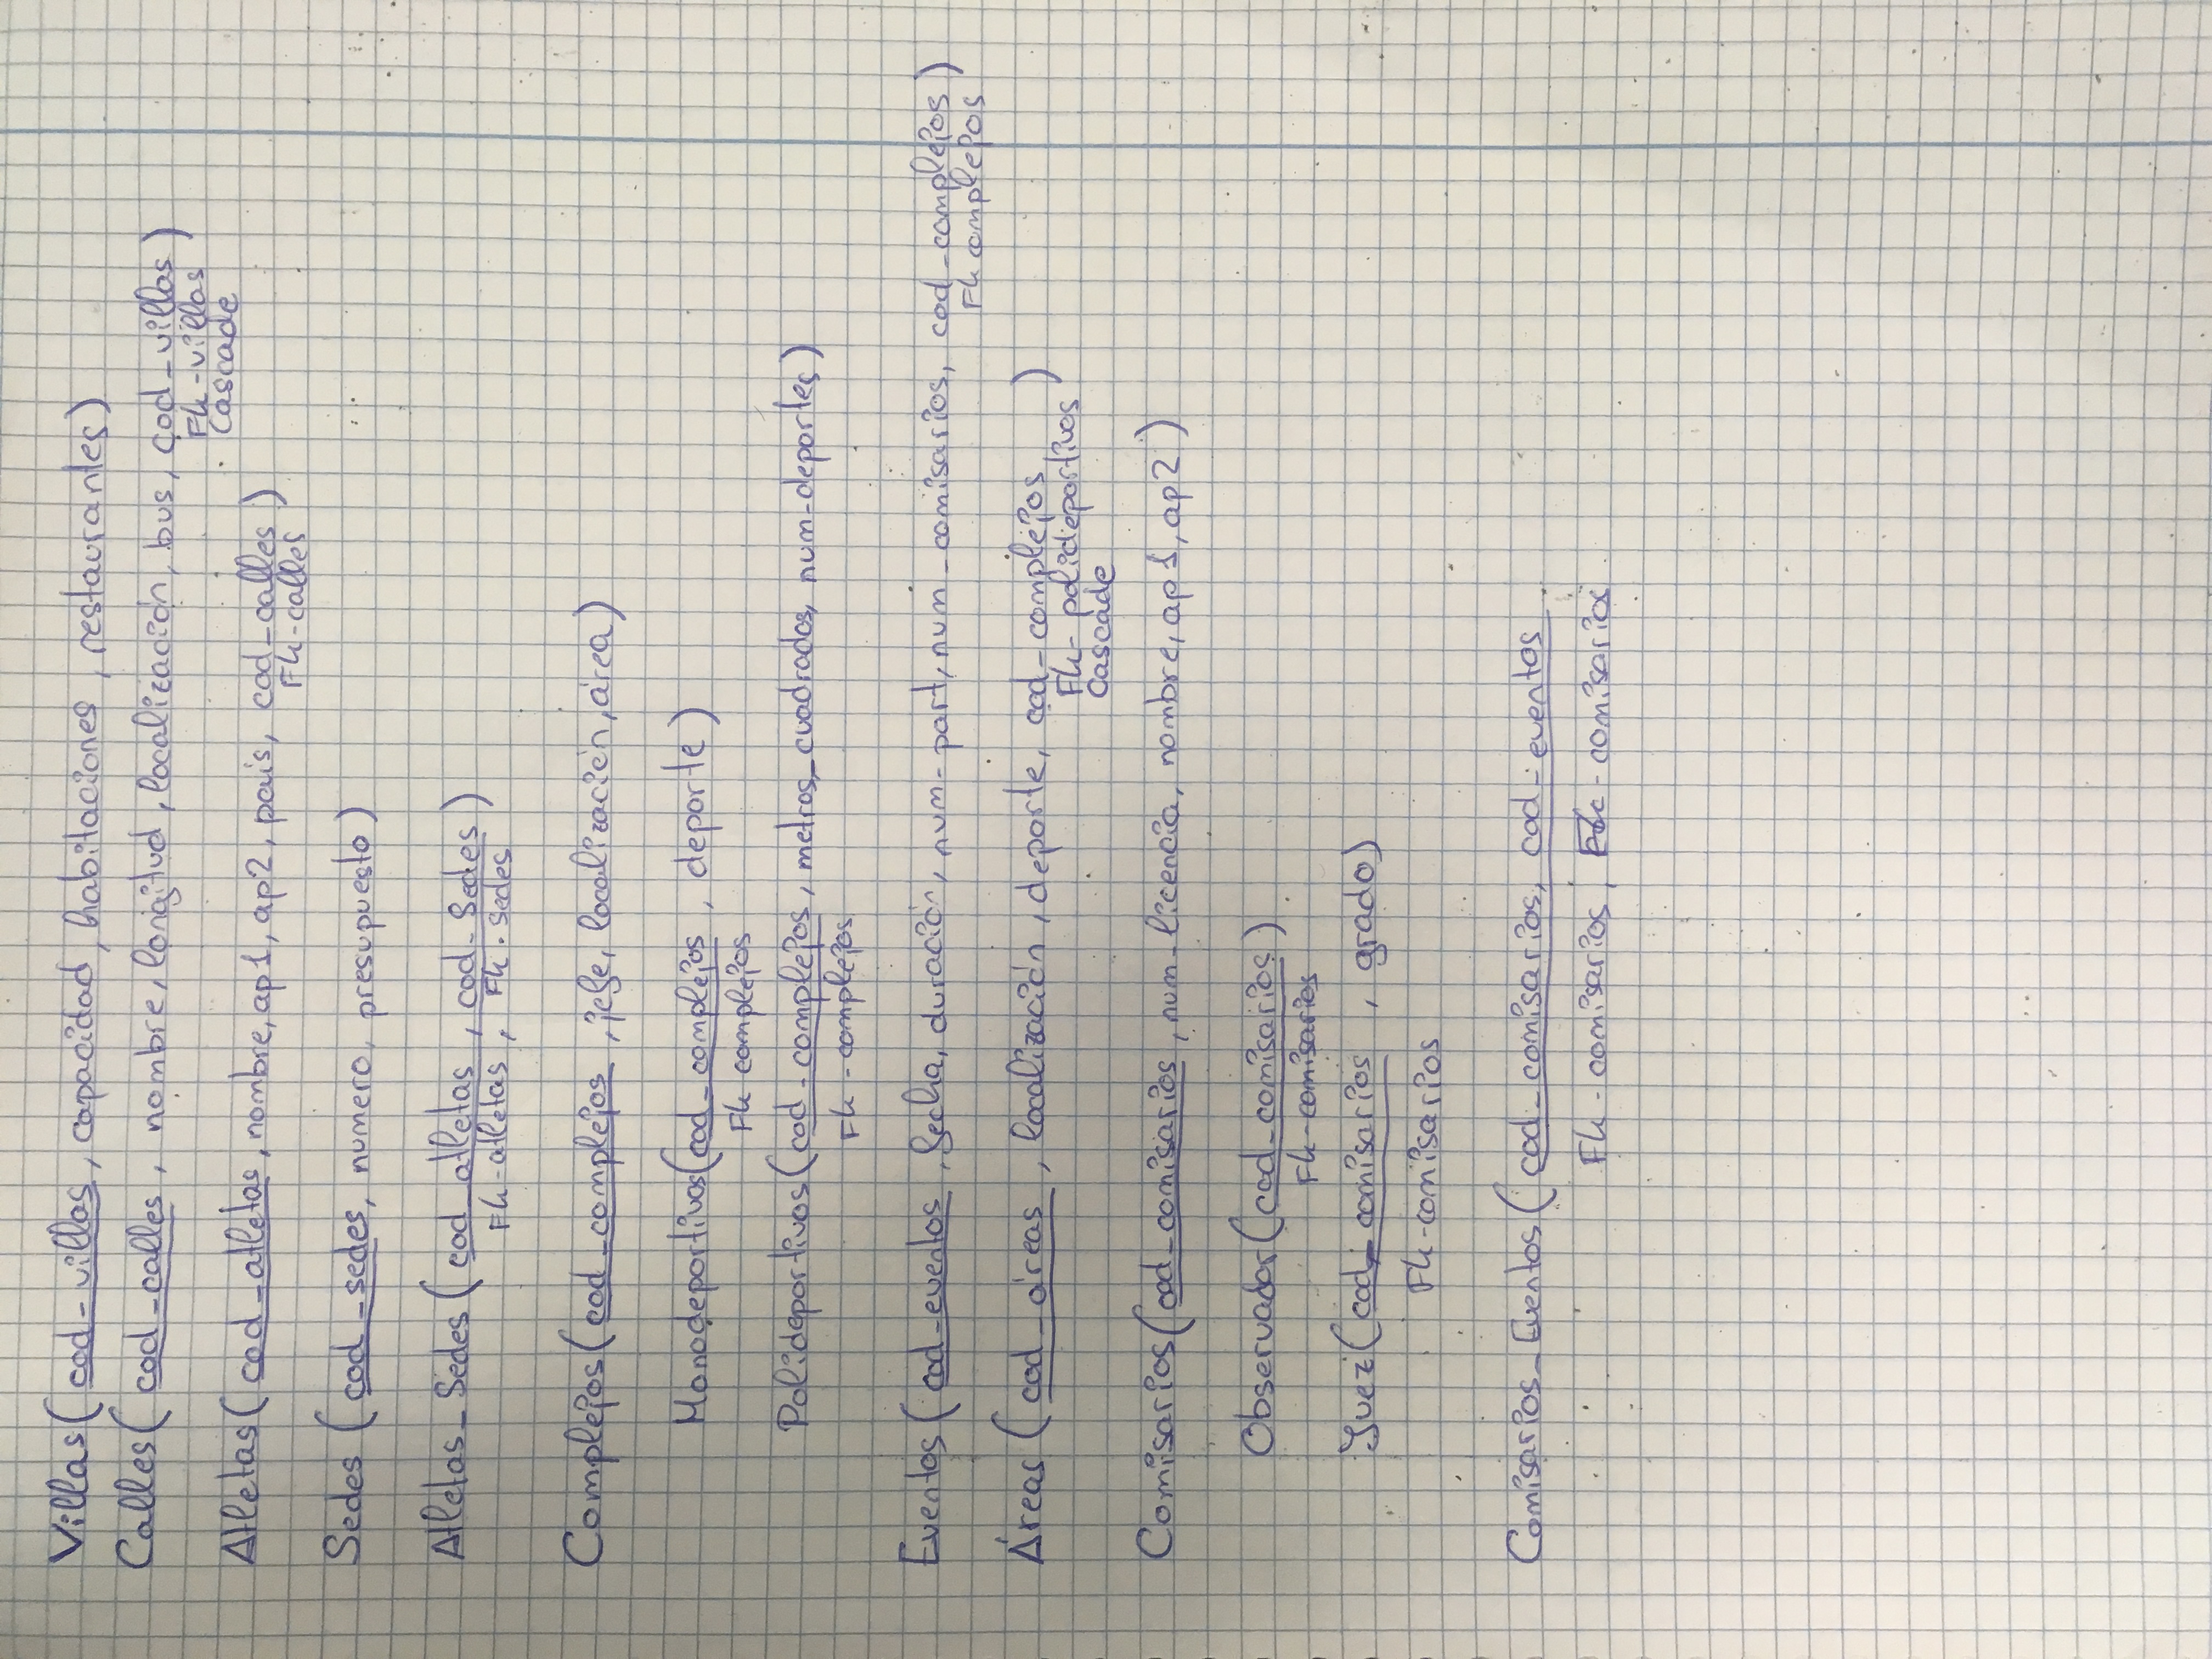 Villas( cod-villas, capacidad, habitaciones, restaurantes)
Calles( cod-calles, nombre, longitud, localización, bus, cod-villas)
Fk-villas
Cascade
Atletas( cod-atletas, nombre, ap1, ap2, pais, cod-calles)
Fk-calles
Sedes ( cod-sedes, numero, presupuesto)
Atletas-Sedes( cod-atletas, cod-sedes)
Fk-atletas, Fk-sedes
Complejos( cod-complejos, jefe, localización, área)
Monodeportivos(cod-complejos, deporte)
Fk complejos
Polideportivos(cod-complejos, metros_cuadrados, num-deportes)
Fk-complejos
Eventos( cod-eventos, fecha, duración, num-part, num-comisarios, cod-complejos)
Fk complejos
Áreas ( cod-áreas, localización, deporte, cod-complejos )
Fk-polideportivos
Cascade
Comisarios(cod-comisarios, num-licencia, nombre, ap1, ap2)
Observador(cod-comisarios)
Fk-comisarios
Juez(cod-comisarios, grado)
Fk-comisarios
Comisarios-Eventos( cod-comisarios, cod-eventos
Fk-comisarios, Fk-comisarios